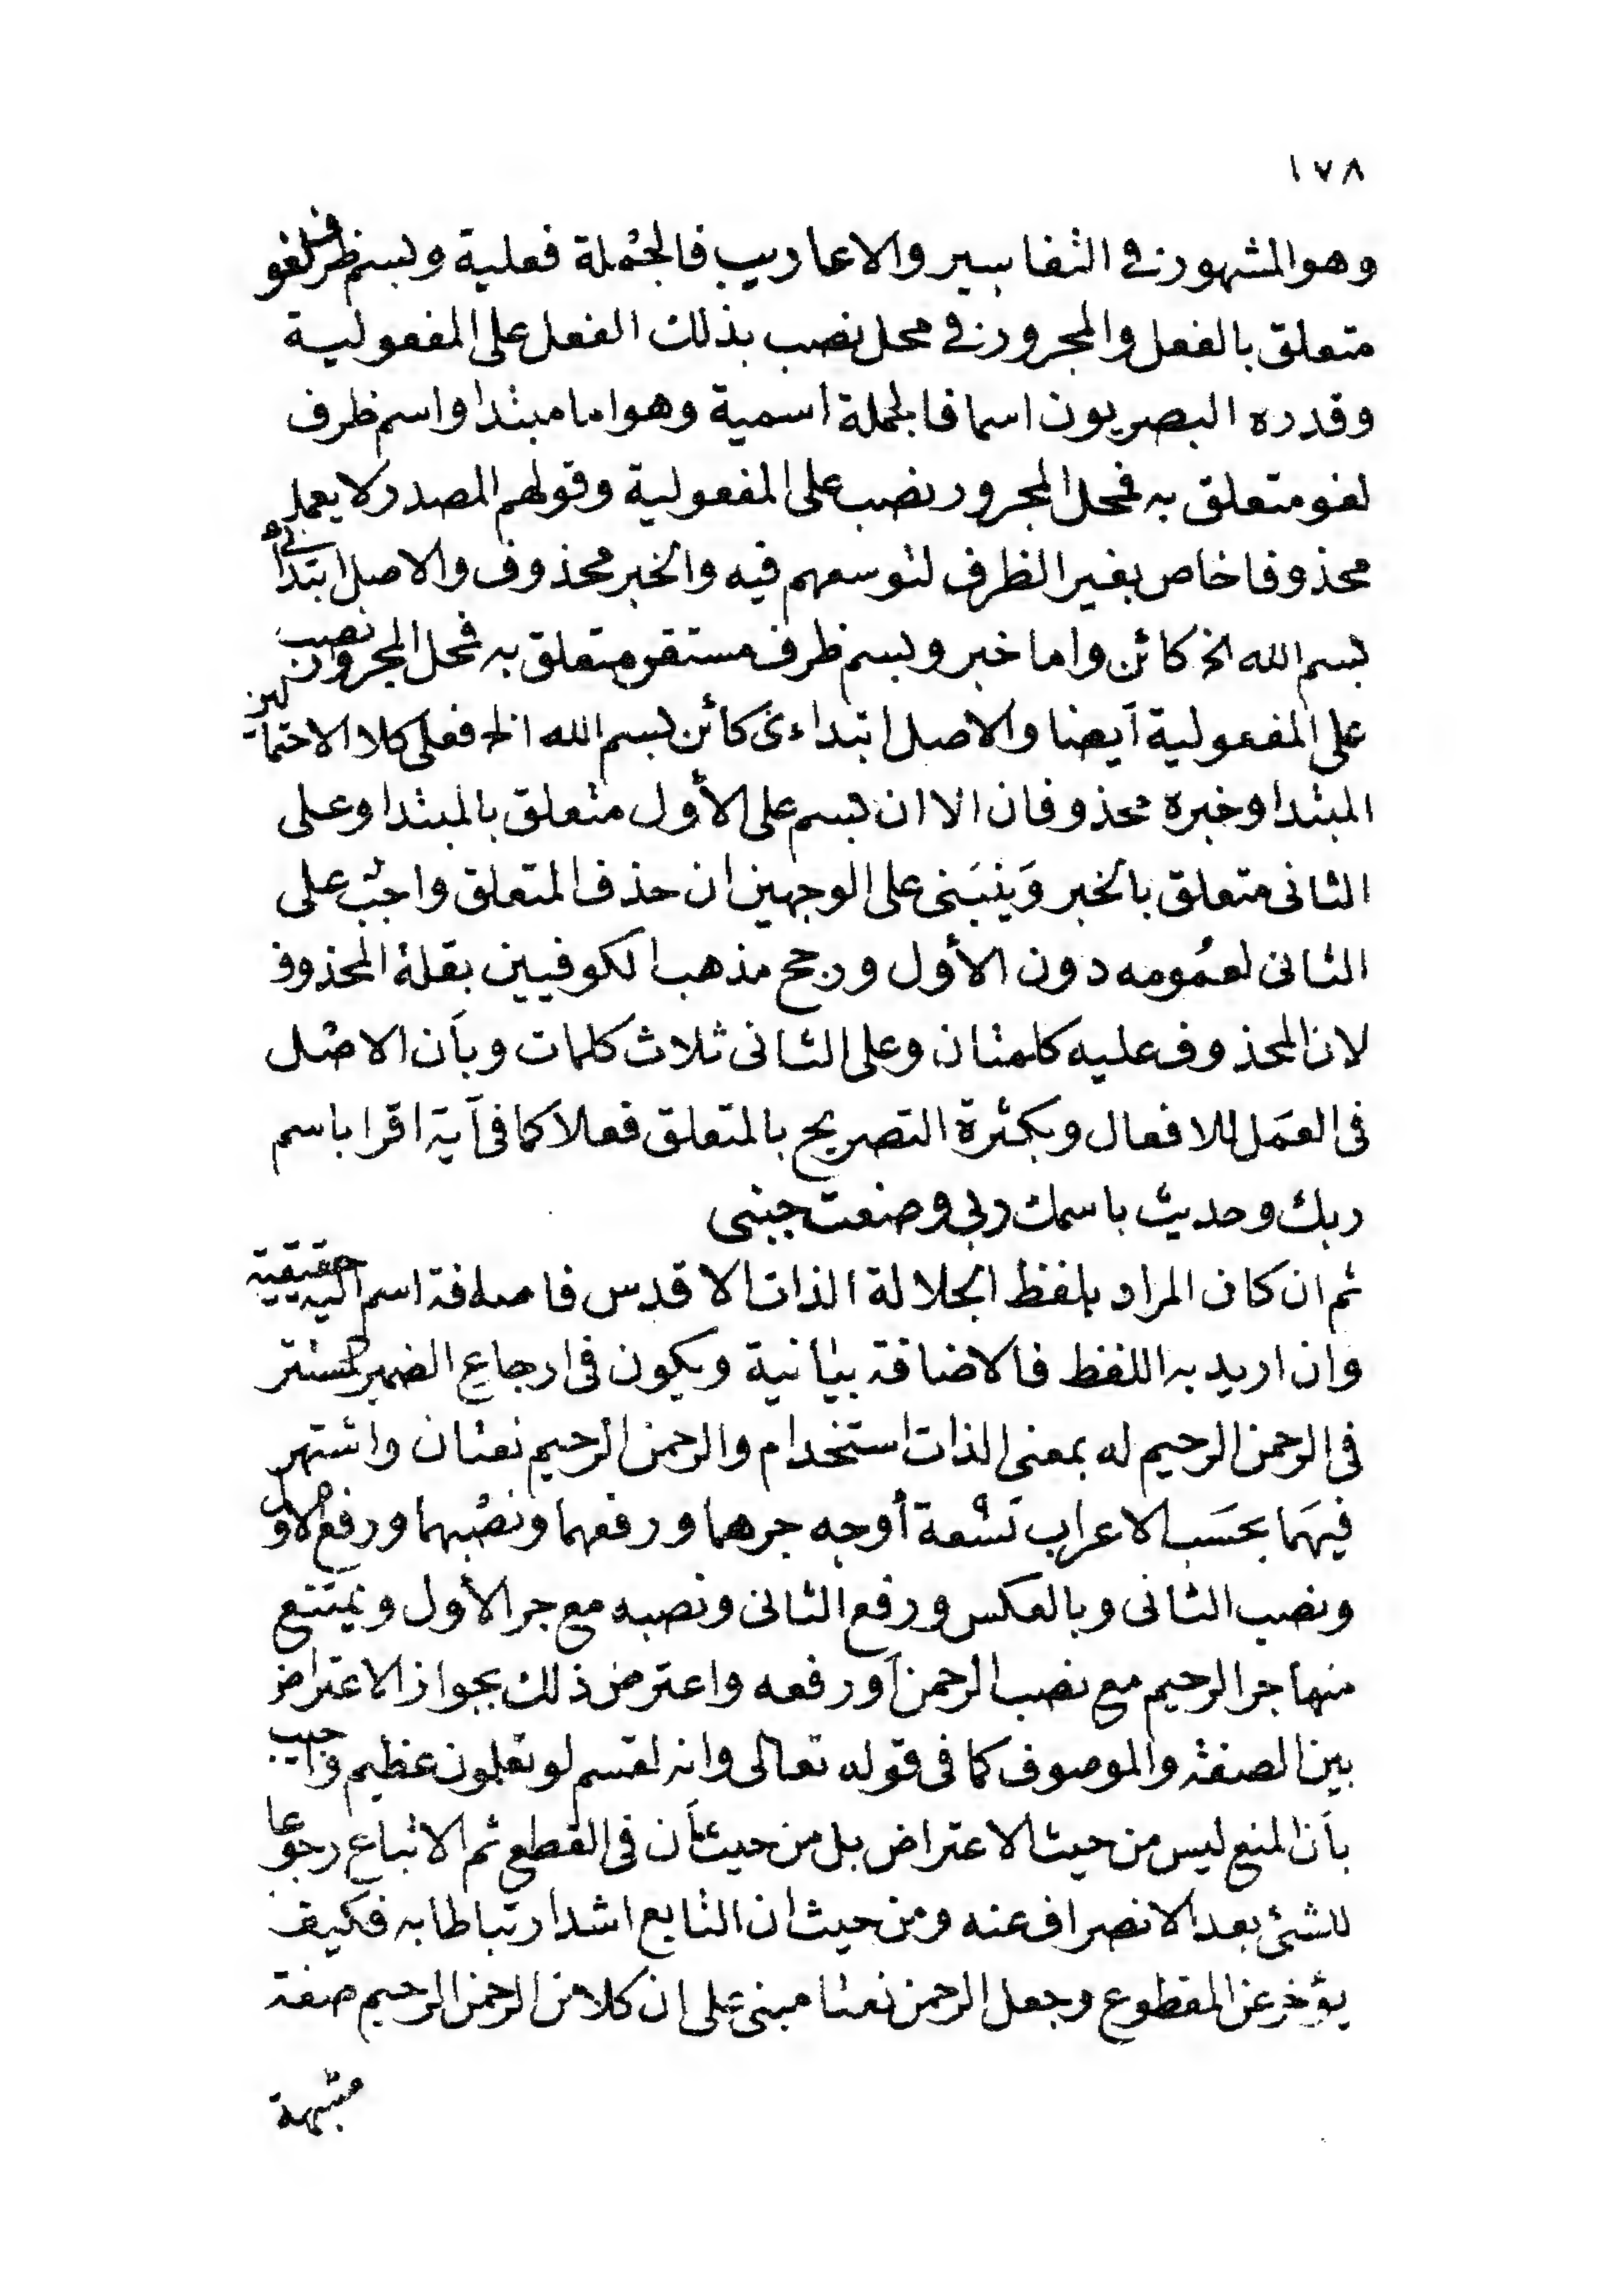 ١٧٨
وهو المشهور في التفاسير والاعاريب فالجملة فعلية وبسم ظرف لغو
متعلق بالفعل والمجرور في محل نصب بذلك الفعل على المفعولية
وقدره البصريون اسما فالجملة اسمية وهو اما مبتدا واسم ظرف
لغو متعلق به فمحل المجرور نصب على المفعولية وقولهم المصدر لا يعمل
محذوفا خاص بغير الظرف لتوسعهم فيه والخبر محذوف والاصل ابتدائى
بسم الله الخ كائن واما خبر وبسم ظرف مستقر متعلق به فمحل المجرور نصب
على المفعولية أيضا والاصل ابتداءى كائن بسم الله الخ فعلى كلا الاحتمالين
المبتدا وخبره محذوفان الا ان بسم على الأول متعلق بالمبتدا وعلى
الثانى متعلق بالخبر وَينبَنى على الوجهين ان حذف المتعلق واجبٌ على
الثانى لعُمومه دون الأول ورجح مذهب الكوفيين بقلة المحذوف
لان المحذوف عليه كلمتان وعلى الثانى ثلاث كلمات وبأن الاصْل
فى العَمل للافعال وبكثرة التصريح بالمتعلق فعلا كما فى آية اقرا باسم
ربك وحديث باسمك ربى وضعت جنبى
ثم ان كان المراد بلفظ الجلالة الذات الاقدس فاضافة اسم اليه حقيقية
وان اريد به اللفظ فالاضافة بيانية ويكون فى ارجاع الضمير المستتر
فى الرحمن الرحيم له بمعنى الذات استخدام والرحمن الرحيم نعتان واشتهر
فيهَما بحسَب الاعراب تسْعة أوجه جرهما ورفعهما ونصْبهما ورفع الاول
ونصب الثانى وبالعكس ورفع الثانى ونصبه مع جر الأول ويمتنع
منها جر الرحيم مع نصب الرحمن أو رفعه واعترض ذلك بجواز الاعتراض
بين الصفة والموصوف كما فى قوله تعالى وانه لقسم لو تعلمون عظيم واجيب
بأن المنع ليس من حيث الاعتراض بل من حيث أن فى القطع ثم الاتباع رجوعا
للشئ بعد الانصراف عنه ومن حيث ان التابع اشد ارتباطا به فكيف
يؤخر عن المقطوع وجعل الرحمن نعتا مبنى على ان كلا من الرحمن الرحيم صفة
مشبهة